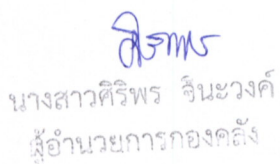 นางสาวศิริพร จินะวงค์
ผู้อำนวยการกองคลัง